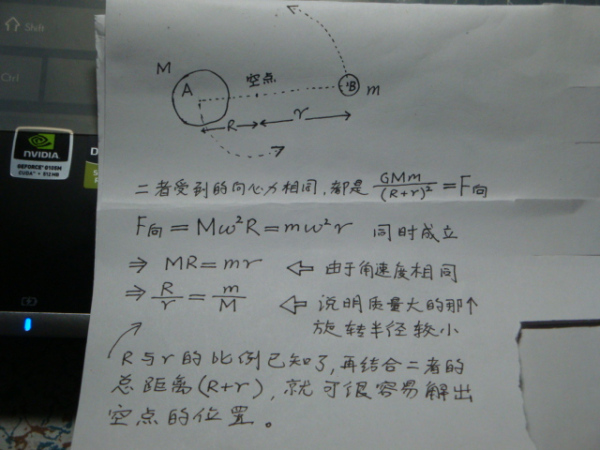 Shift
Ctrl
NVIDIA
M
A
空点
B
m
R
r
二者受到的向心力相同,都是 GMm/(R+r)² = F向
F向 = Mω²R = mω²r 同时成立
⇒ MR = mr ⇐ 由于角速度相同
⇒ R/r = m/M ⇐ 说明质量大的那个
旋转半径较小
R与r的比例已知了,再结合二者的
总距离(R+r),就可很容易解出
空点的位置。